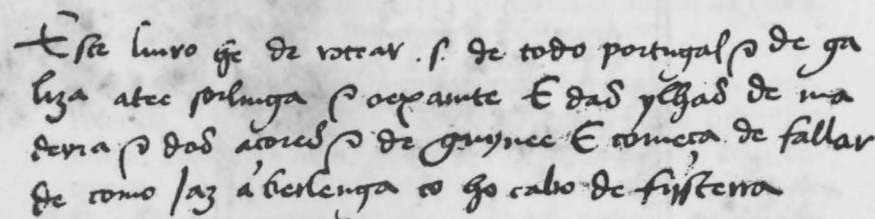 Este liuro he de rotear .s. de todo portugal & de ga
liza atee sorlinga & oexamte E das ylhas de ma
deira & dos açores & de guynee E comeca de fallar
de como Jaz a berlenga co ho cabo de fijsterra